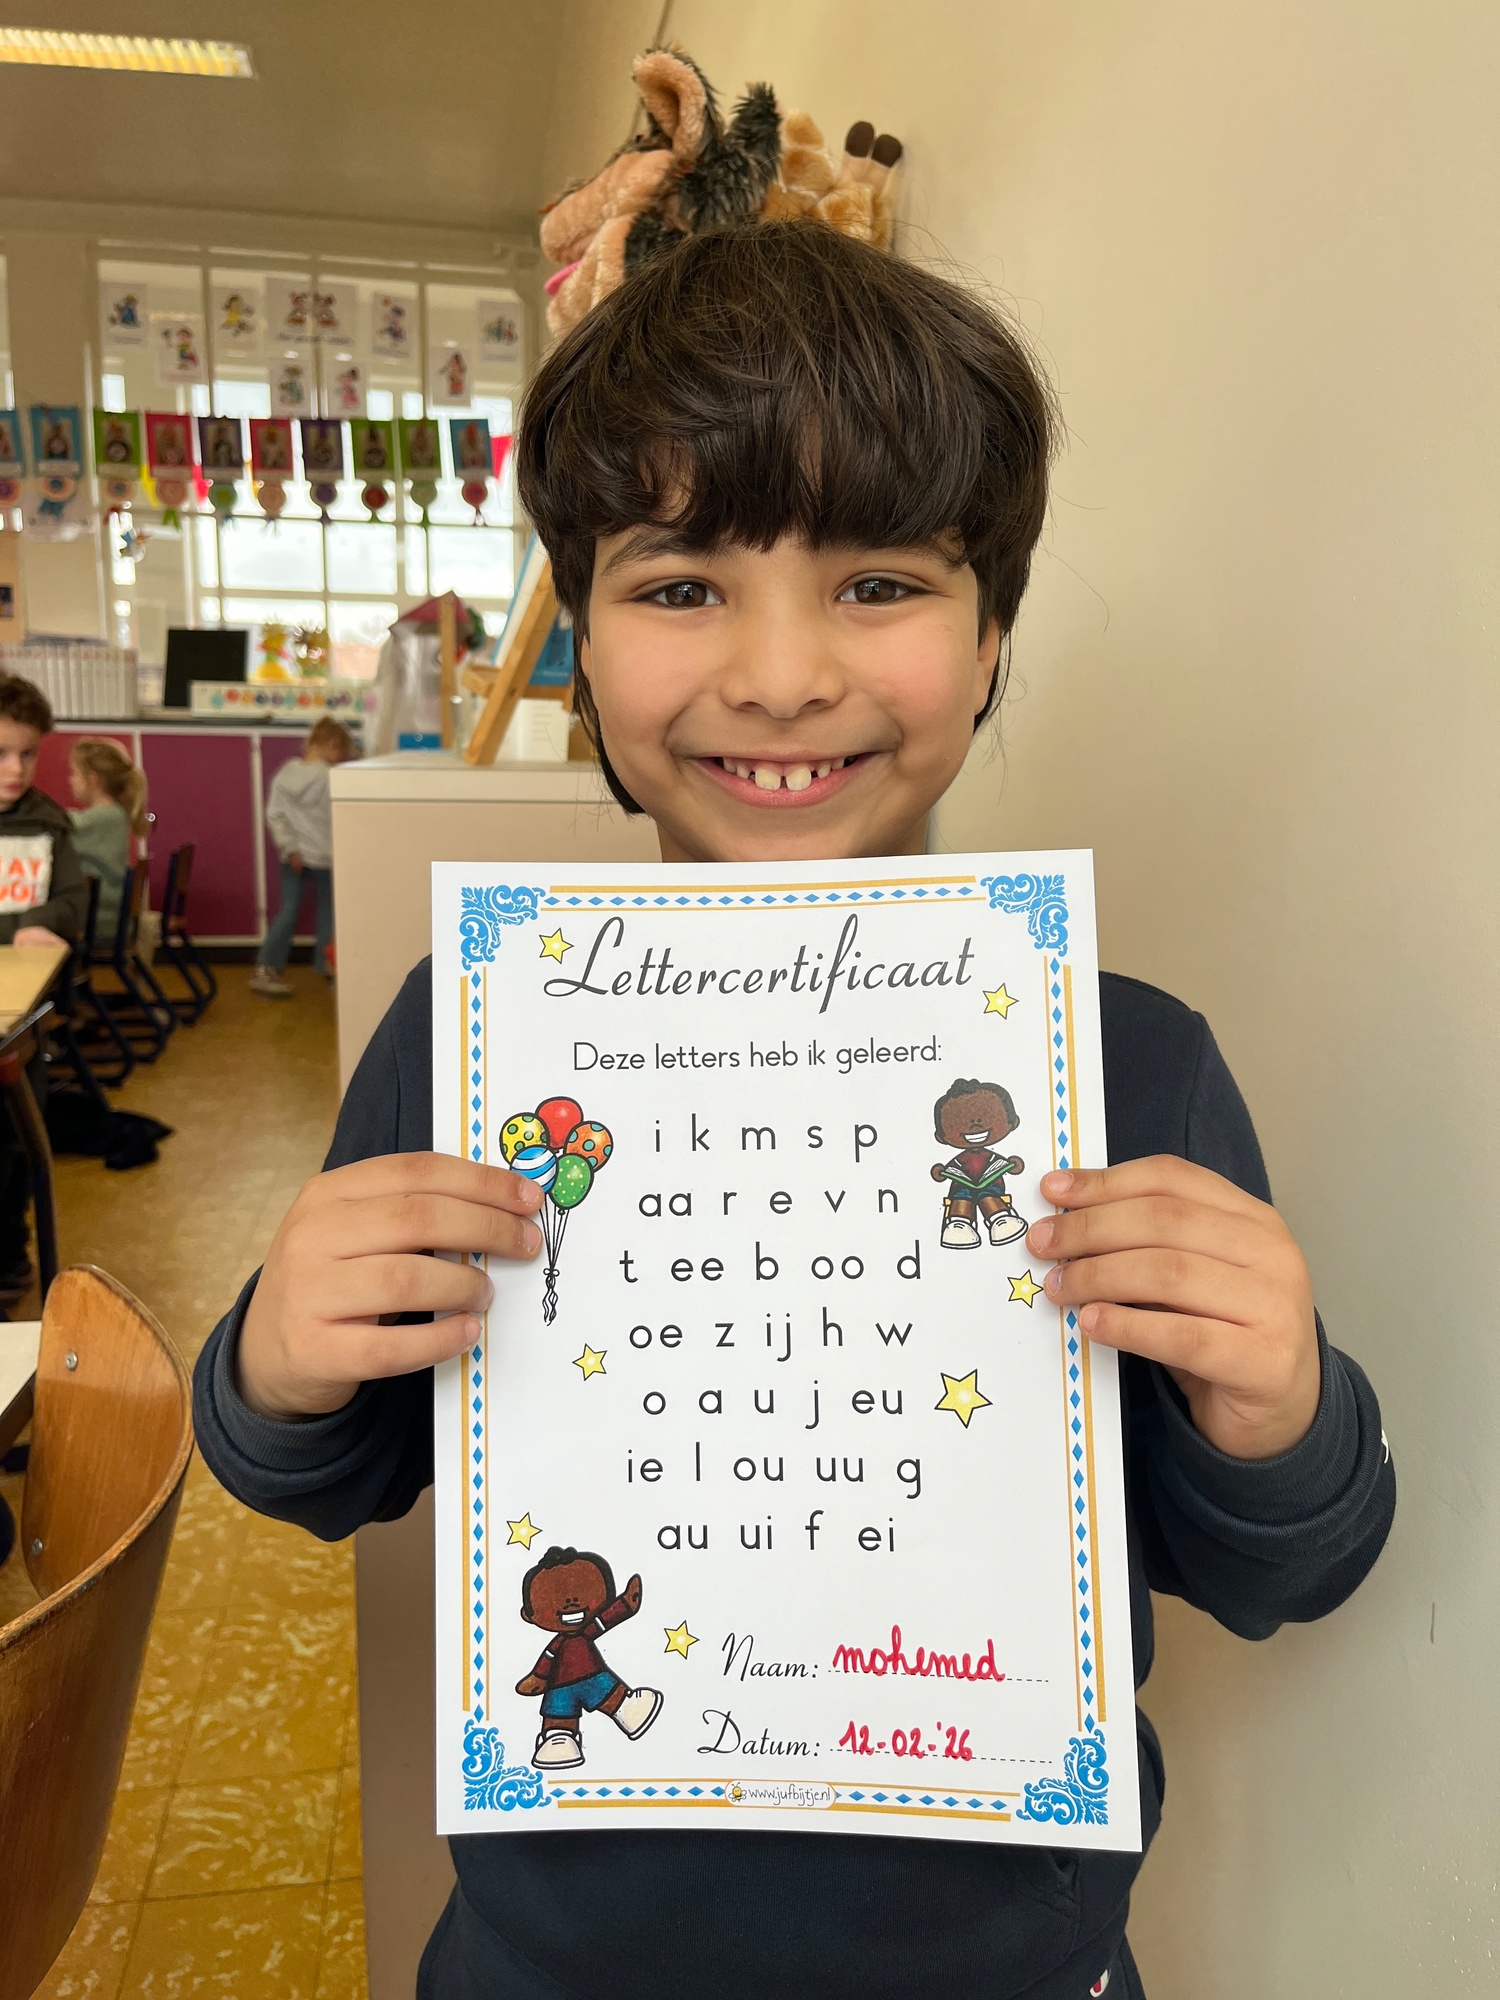 Lettercertificaat
Deze letters heb ik geleerd:
i k m s p
aa r e v n
t ee b oo d
oe z ij h w
o a u j eu
ie l ou uu g
au ui f ei
Naam: mohemed
Datum: 12-02-'26
www.jufbijtje.nl